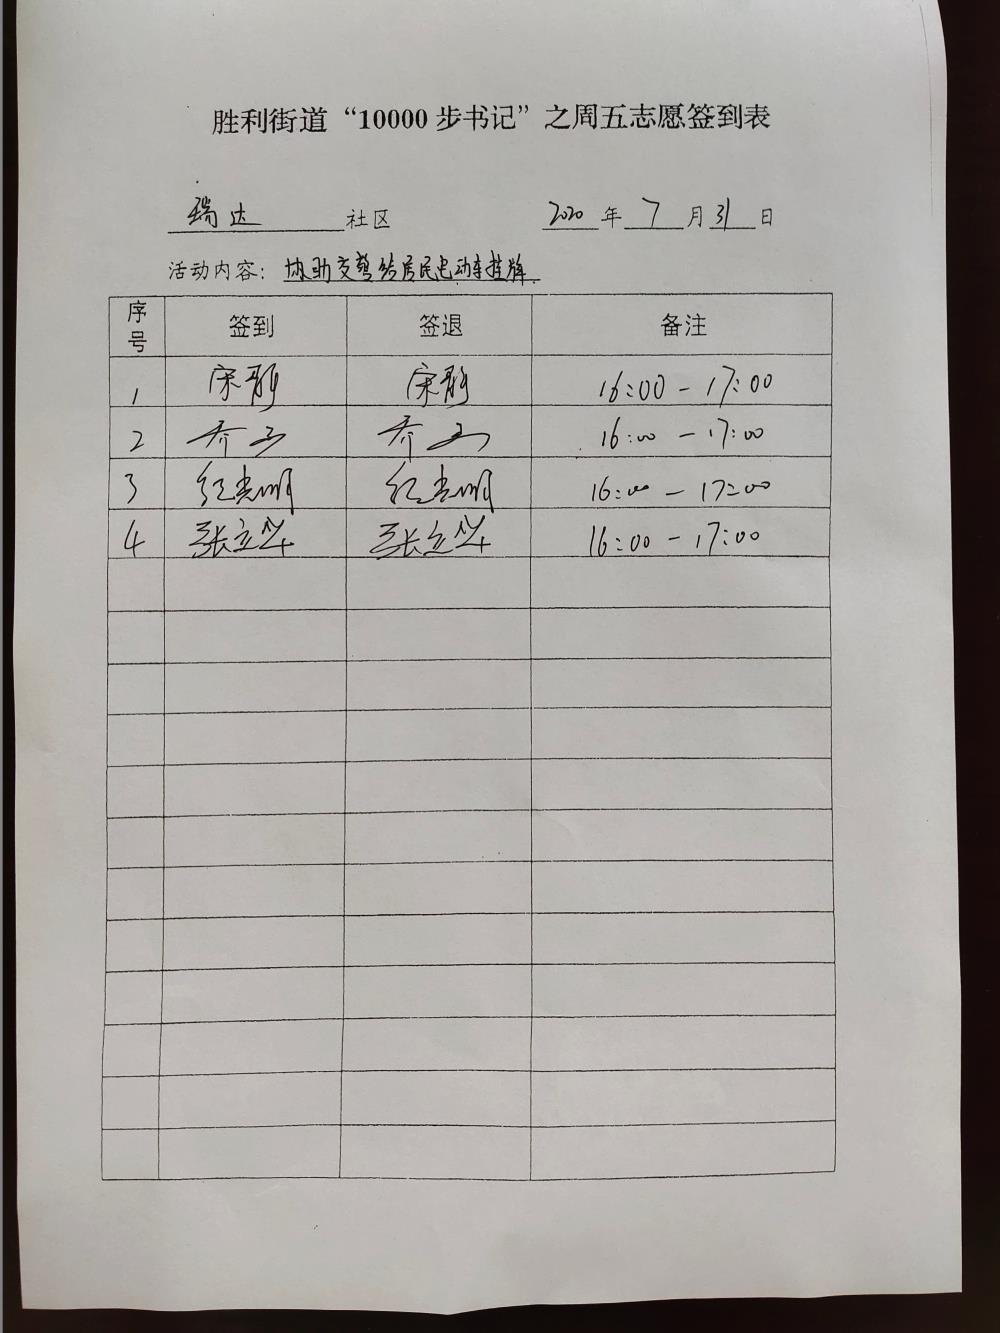 胜利街道“10000步书记”之周五志愿签到表
瑞达 社区 2020 年 7 月 31 日
活动内容：协助交警给居民电动车挂牌
序号 签到 签退 备注
1 宋静 宋静 16:00-17:00
2 乔 乔 16:00-17:00
3 纪志明 纪志明 16:00-17:00
4 张立华 张立华 16:00-17:00